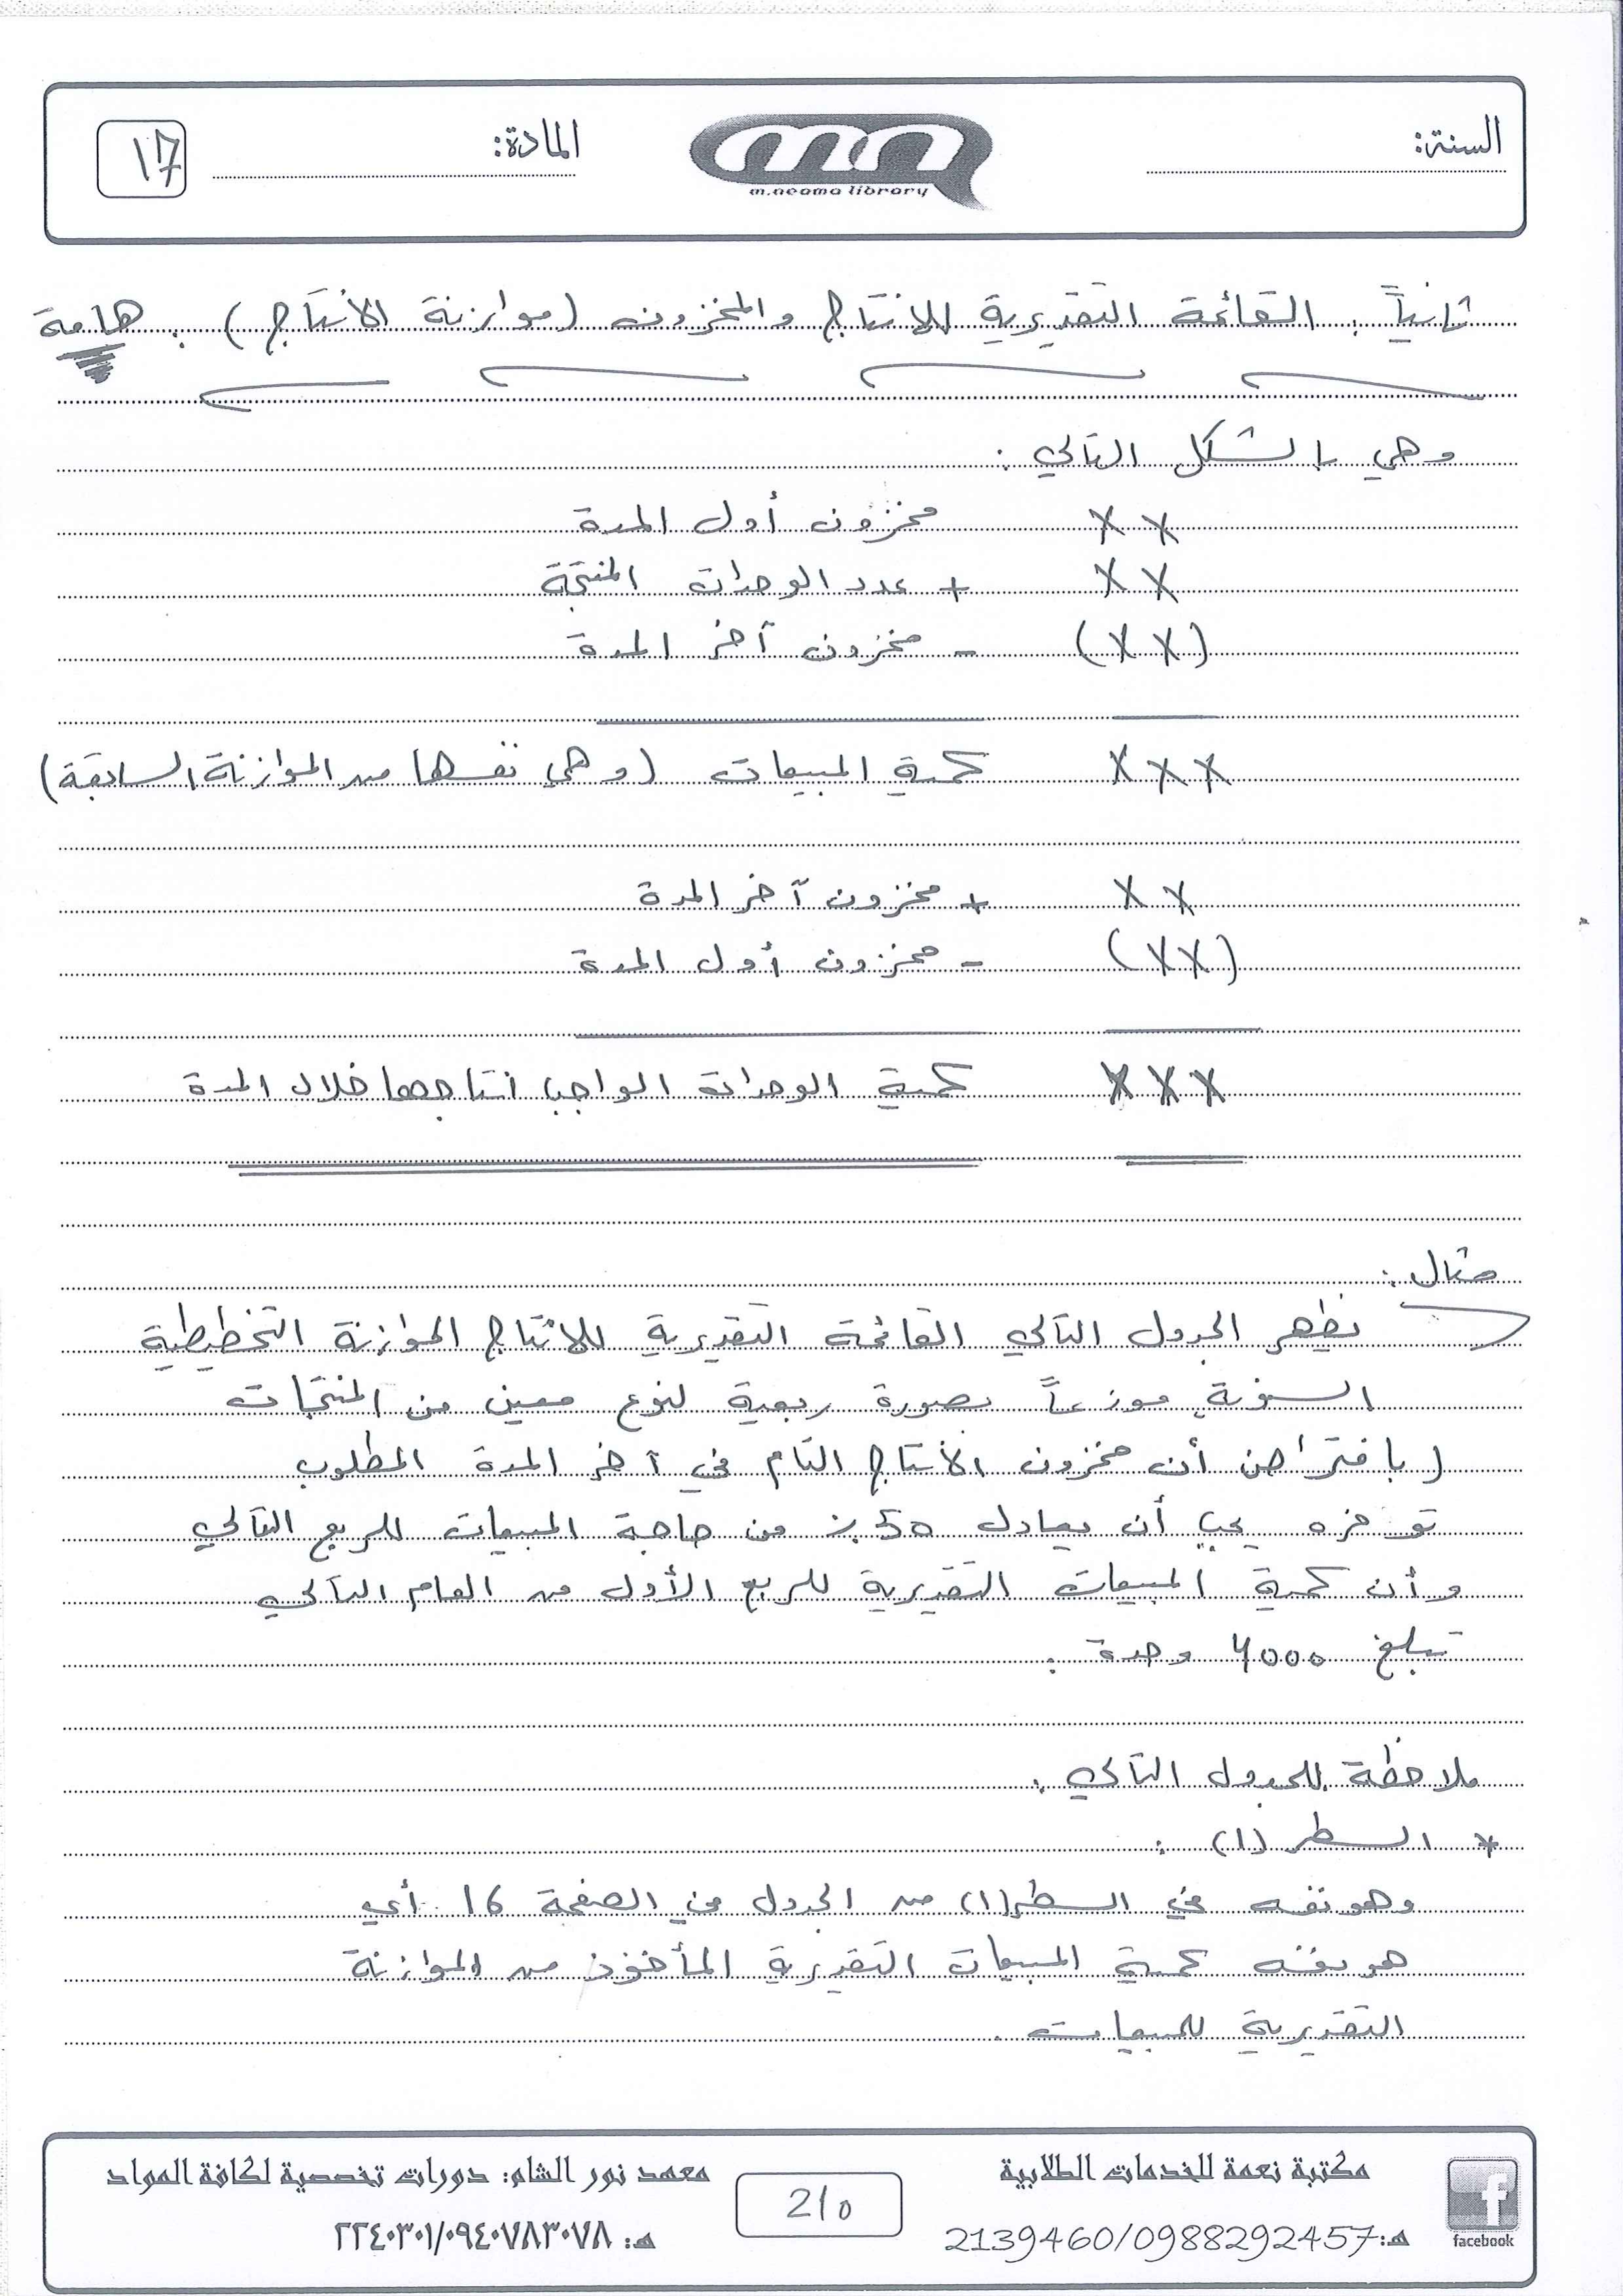 السنة:
m.neama library
المادة:
17
ثانياً: القائمة التقديرية للانتاج والمخزون (موازنة الانتاج): هامة
وهي بالشكل التالي:
XX مخزون أول المدة
XX + عدد الوحدات المنتجة
(XX) - مخزون آخر المدة
XXX كمية المبيعات (وهي نفسها من الموازنة السابقة)
XX + مخزون آخر المدة
(XX) - مخزون أول المدة
XXX كمية الوحدات الواجب انتاجها خلال المدة
مثال:
يظهر الجدول التالي القائمة التقديرية للانتاج الموازنة التخطيطية
السنوية موزعاً بصورة ربعية لنوع معين من المنتجات
(بافتراض أن مخزون الانتاج التام في آخر المدة المطلوب
توفره يجب أن يعادل 50% من حاجة المبيعات للربع التالي
وأن كمية المبيعات التقديرية للربع الأول من العام التالي
تبلغ 4000 وحدة.
ملاحظة للجدول التالي:
* السطر (1):
وهو نفسه في السطر (1) من الجدول في الصفحة 16 أي
هو نفسه كمية المبيعات التقديرية المأخوذ من الموازنة
التقديرية للمبيعات.
مكتبة نعمة للخدمات الطلابية
هـ:2139460/0988292457
facebook
2/5
معهد نور الشام: دورات تخصصية لكافة المواد
هـ: ٢٢٤٠٣٠١/٠٩٤٠٧٨٣٠٧٨